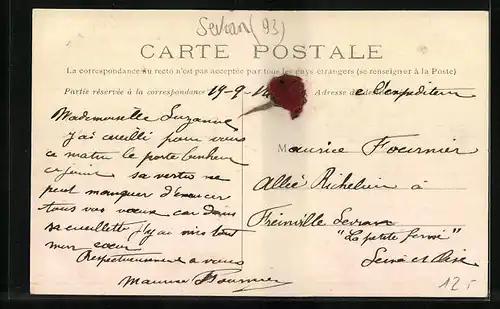 Sevran (93)
CARTE POSTALE
La correspondance au recto n'est pas acceptée par tous les pays étrangers (se renseigner à la Poste)
Partie réservée à la correspondance
19-9-
Adresse de
l'expediteur
Mademoiselle Suzanne
j'ai cueilli pour vous
ce matin le porte bonheur
ci joint sa vertu ne
peut manquer d'exaucer
tous vos vœux car dans
sa cueillette j'y ai mis tout
mon cœur
Respectueusement a vous
Maurice Fournier
Maurice Fournier
Allée Richelieu à
Freinville Sevran
"La petite
Seine et Oise
12